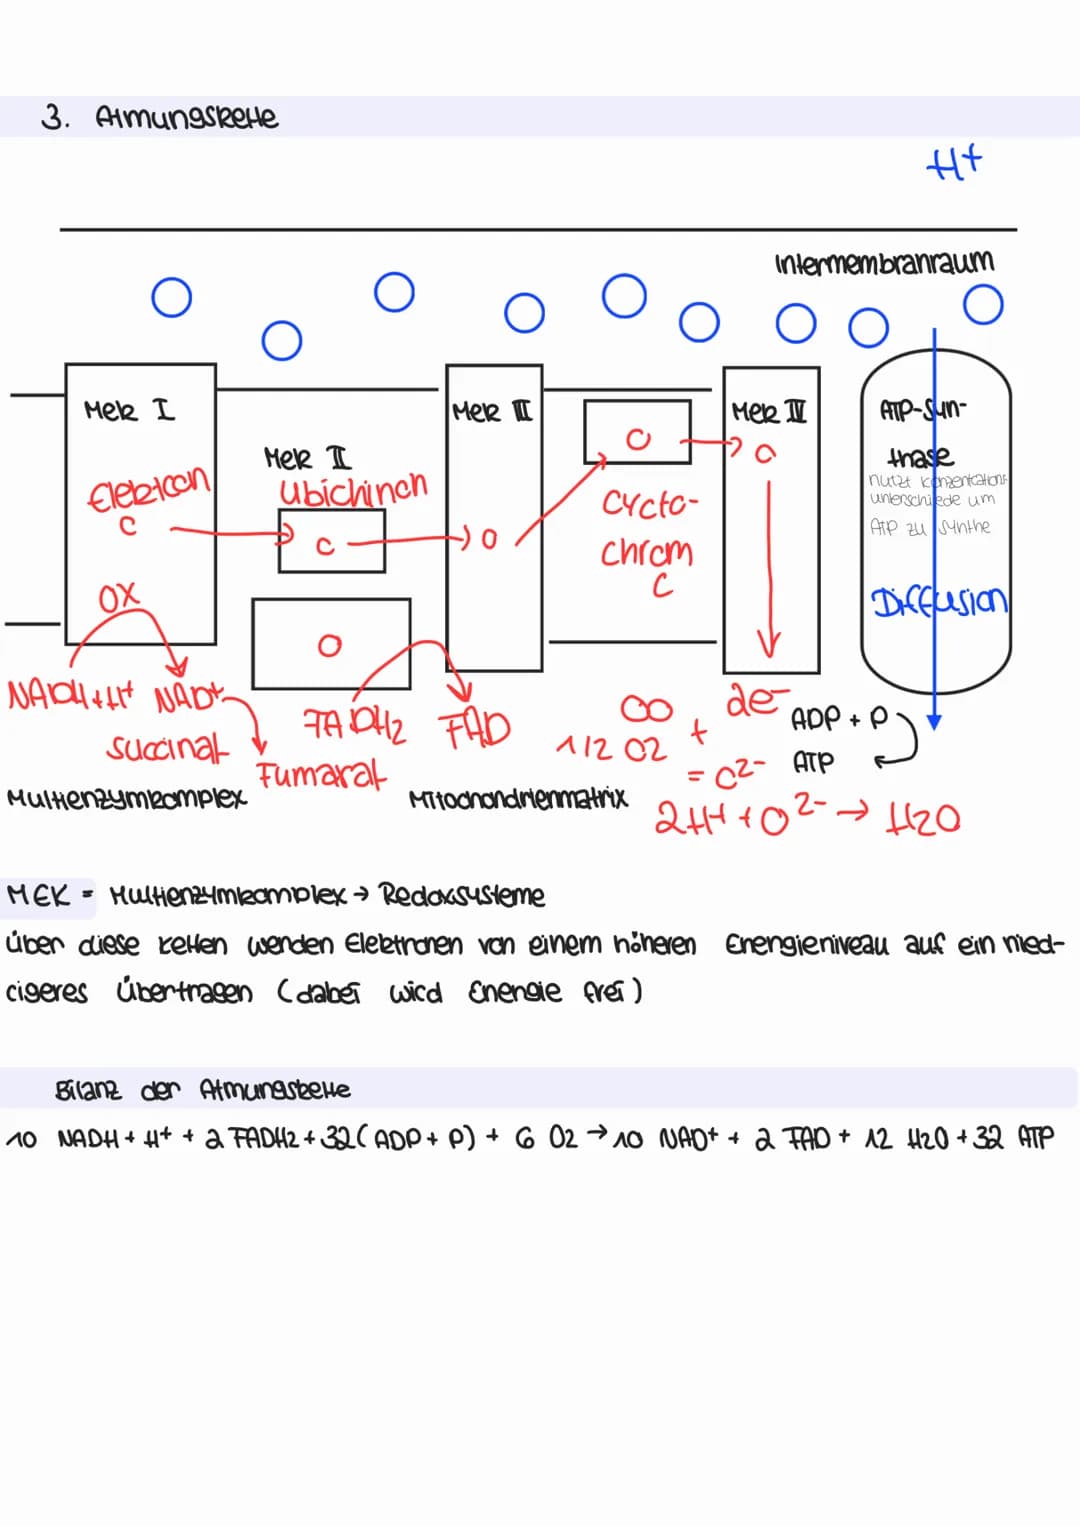 3. Atmungskette
H+
Intermembranraum
Mek I
Mek II
Mek III
Mek IV
ATP-Syn-
thase
nutzt Konzentrations
unterschiede um
ATP zu synthe
Diffusion
Elektron
Ubichinon
Cyto-
chrom
c
OX
NADH+H+ NAD+
Succinat
Fumarat
FADH2 FAD
1/2 O2 + 2e-
= O2-
2H+ + O2- → H2O
ADP + P
ATP
Multienzymkomplex
Mitochondrienmatrix
MEK = Multienzymkomplex → Redoxsysteme
über diese Ketten werden Elektronen von einem höheren Energieniveau auf ein nied-
rigeres übertragen (dabei wird Energie frei)
Bilanz der Atmungskette
10 NADH + H+ + 2 FADH2 + 32(ADP + P) + 6 O2 → 10 NAD+ + 2 FAD + 12 H2O + 32 ATP